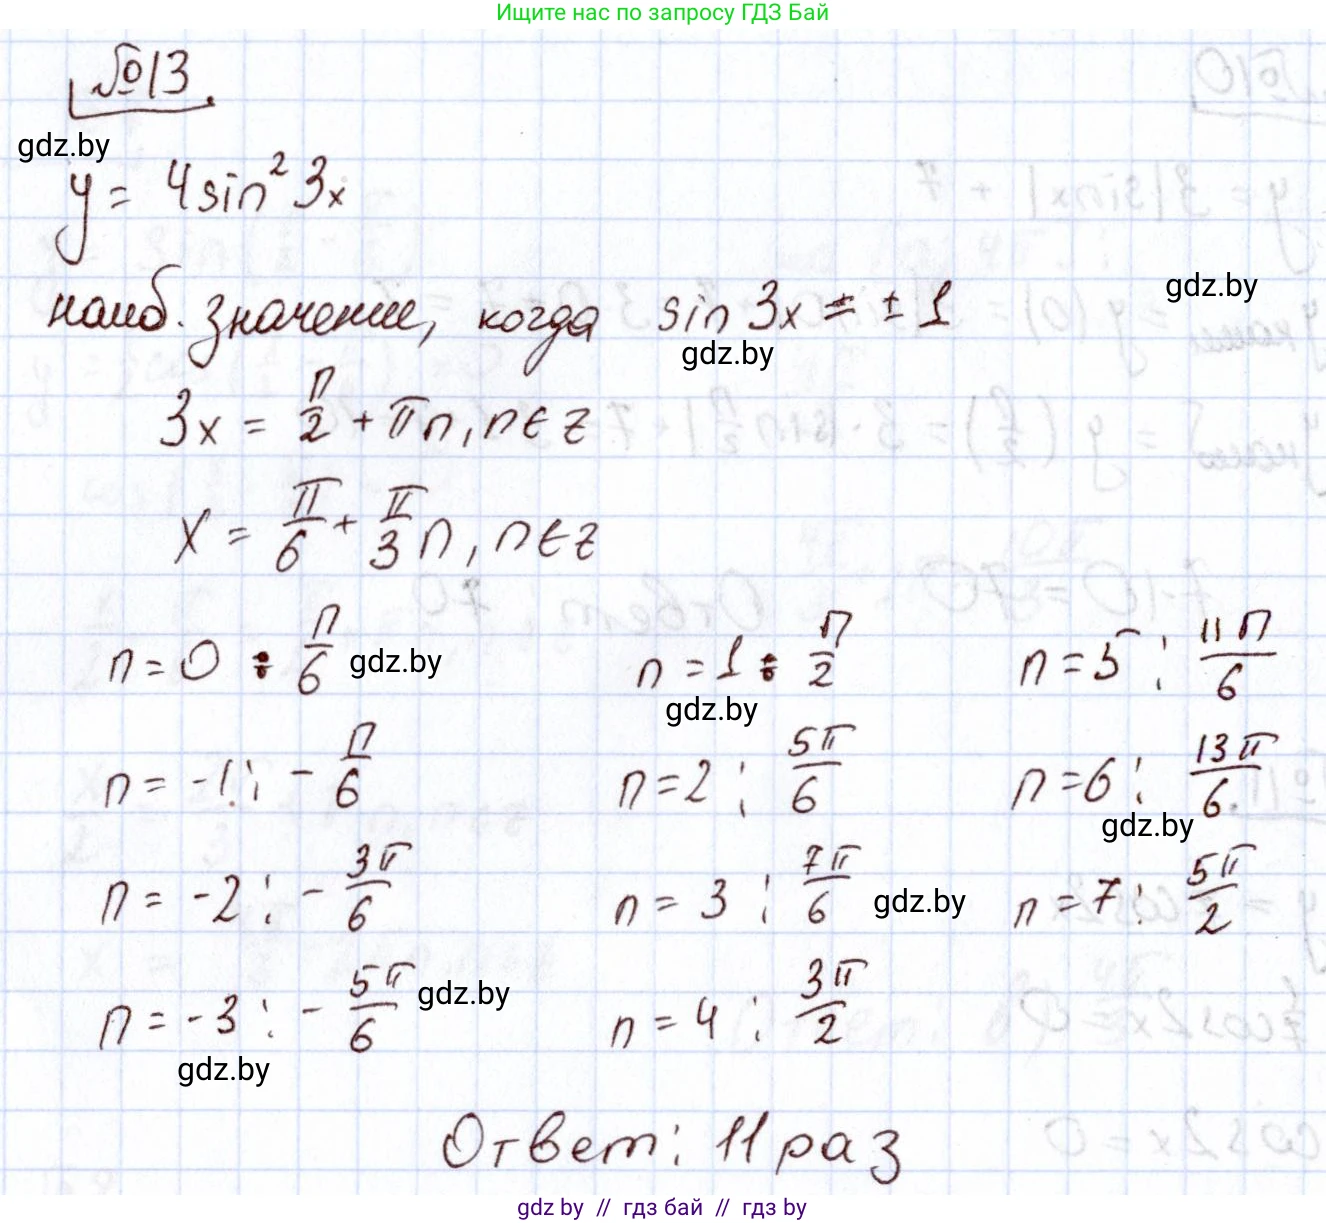 Ищите нас по запросу ГДЗ Бай
№13.
gdz.by
y = 4sin² 3x
gdz.by
наиб. значение, когда sin 3x = ± 1
gdz.by
3x = П/2 + πn, n∈z
x = π/6 + π/3 n, n∈z
n = 0 : П/6 gdz.by n = 1 : П/2 n = 5 : 11П/6
gdz.by
n = -1 : - П/6 n = 2 : 5π/6 n = 6 : 13π/6
gdz.by
n = -2 : - 3π/6 n = 3 : 7π/6 gdz.by n = 7 : 5π/2
n = -3 : - 5π/6 gdz.by n = 4 : 3π/2
gdz.by
Ответ: 11 раз
gdz by // гдз бай // гдз by